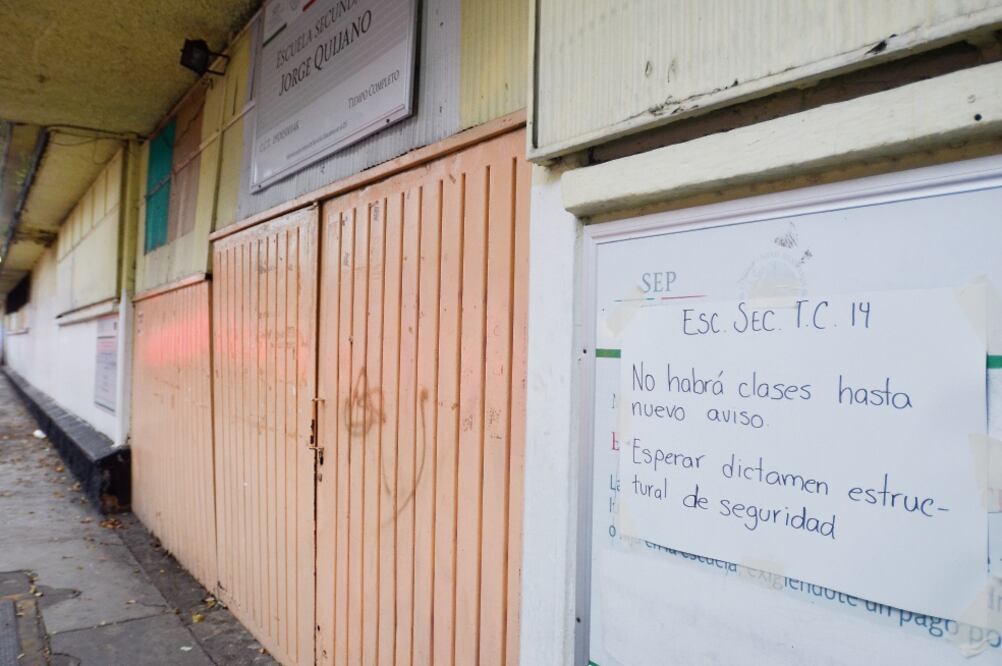 ESCUELA SECUNDA
JORGE QUIJANO
TIEMPO COMPLETO
SEP
ESC. SEC. T.C. 14
No habrá clases hasta
nuevo aviso.
Esperar dictamen estruc-
tural de seguridad
en la escuela, exigiéndote un pago po